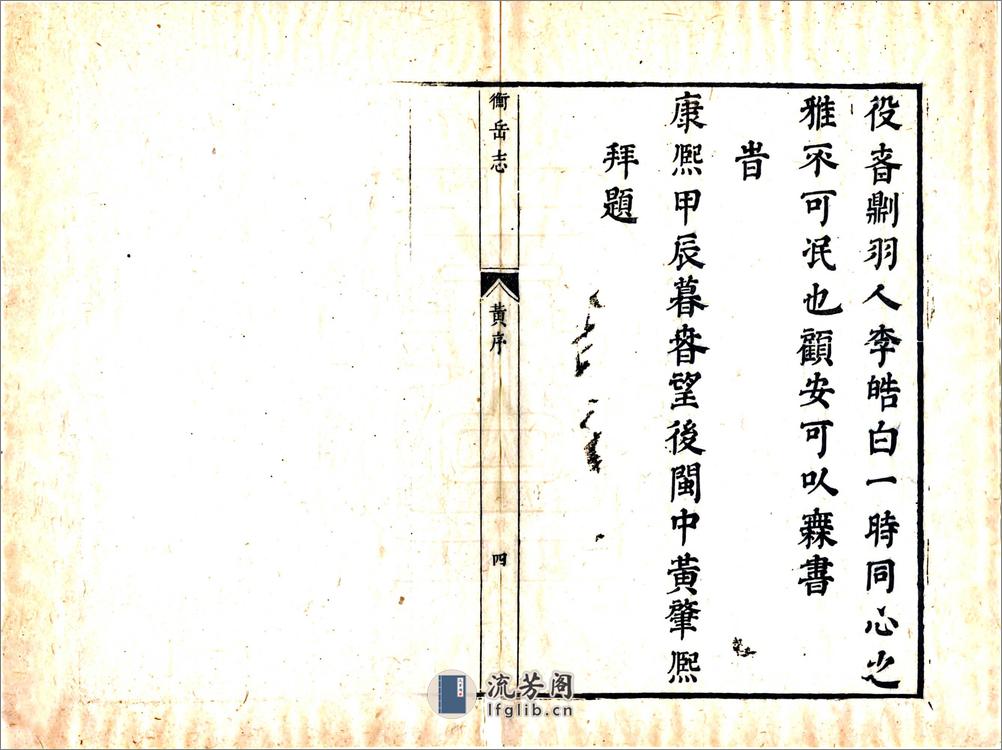 役者則羽人李皓白一時同心之
雅不可泯也顧安可㕥無書
旹
康熙甲辰暮春望後閩中黃肇熙
拜題
衡岳志
黃序
四
流芳阁
lfglib.cn